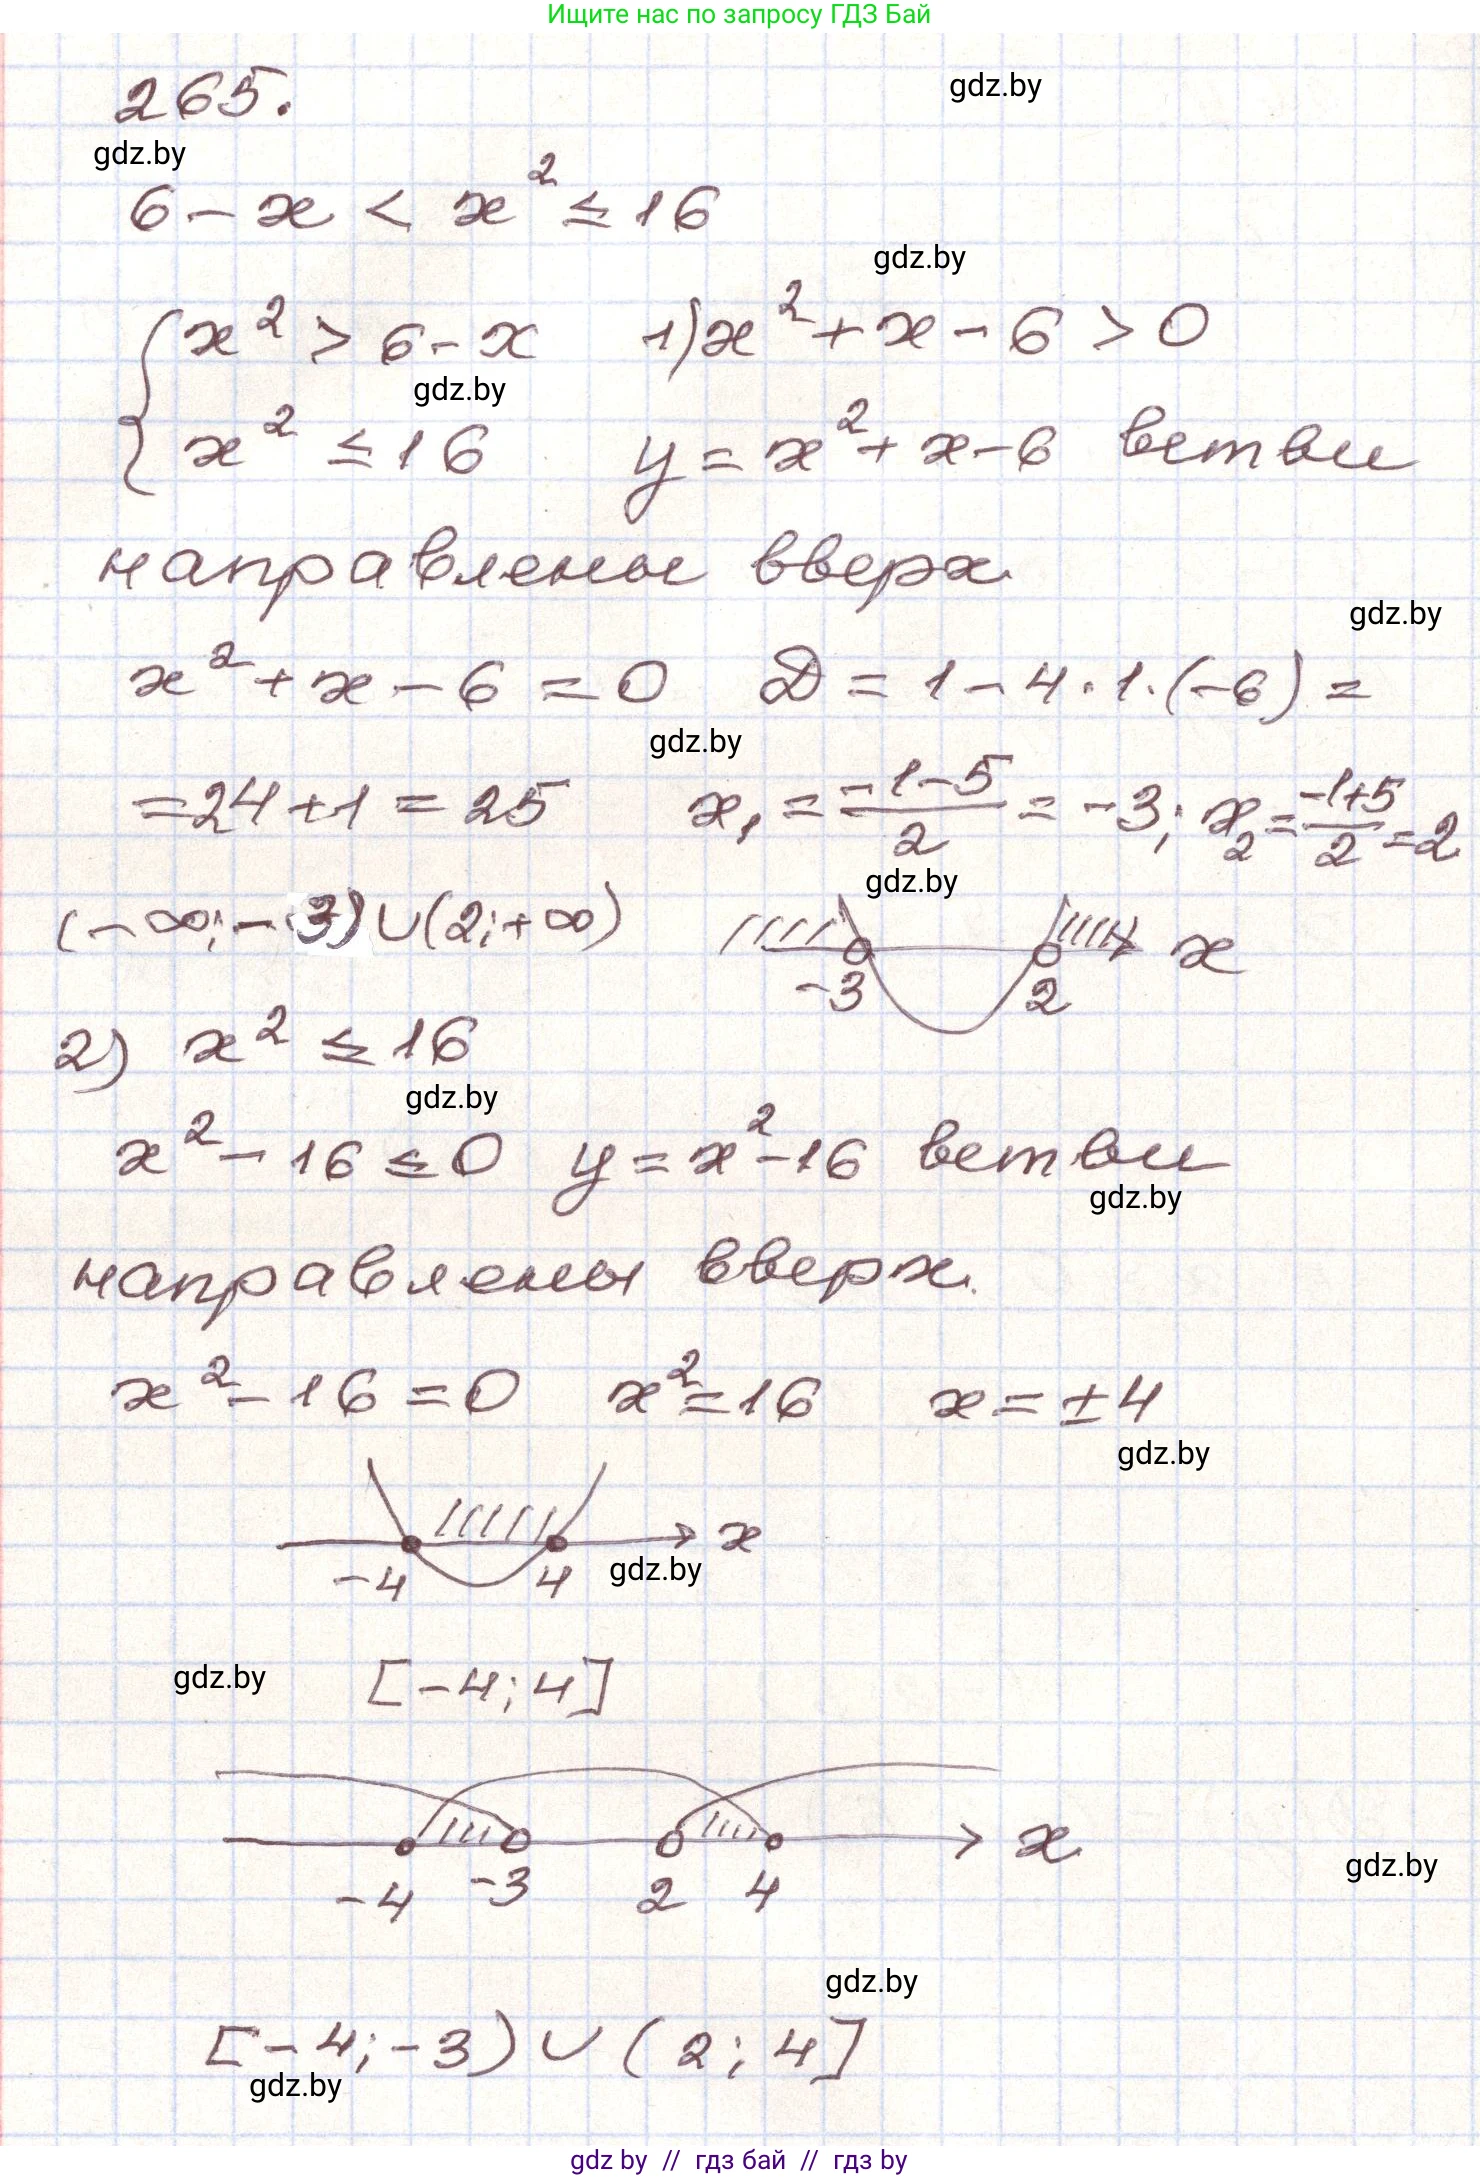 Ищите нас по запросу ГДЗ Бай
265.
gdz.by
gdz.by
6 - x < x² ≤ 16
gdz.by
{ x² > 6 - x   1) x² + x - 6 > 0
gdz.by
x² ≤ 16   y = x² + x - 6 ветви
направлены вверх.
gdz.by
x² + x - 6 = 0   D = 1 - 4 · 1 · (-6) =
gdz.by
= 24 + 1 = 25   x₁ = (-1-5)/2 = -3; x₂ = (-1+5)/2 = 2
gdz.by
(-∞; -3) ∪ (2; +∞)   x
-3   2
2) x² ≤ 16
gdz.by
x² - 16 ≤ 0   y = x² - 16 ветви
gdz.by
направлены вверх.
x² - 16 = 0   x² = 16   x = ±4
gdz.by
x
-4   4   gdz.by
gdz.by   [-4; 4]
x
gdz.by
-4   -3   2   4
gdz.by
[-4; -3) ∪ (2; 4]
gdz.by
gdz by // гдз бай // гдз by